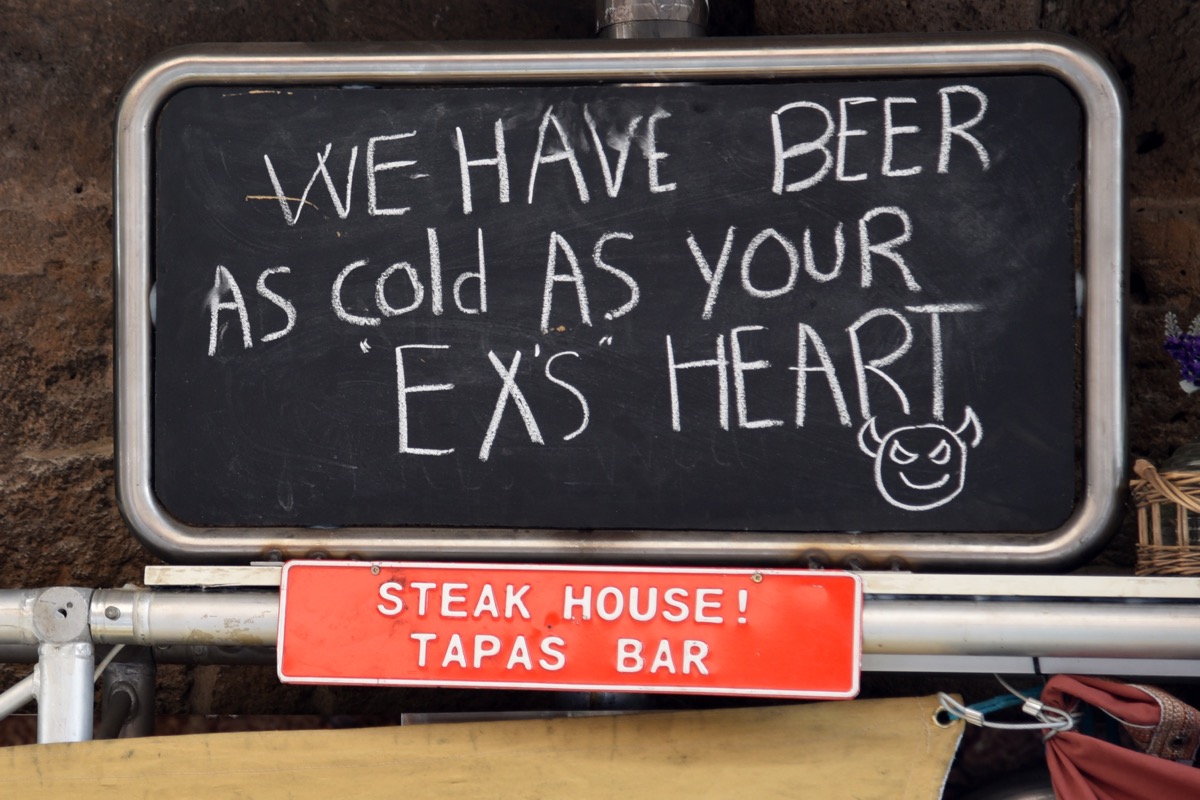 WE HAVE BEER
AS Cold AS YOUR
"EX'S" HEART
STEAK HOUSE!
TAPAS BAR